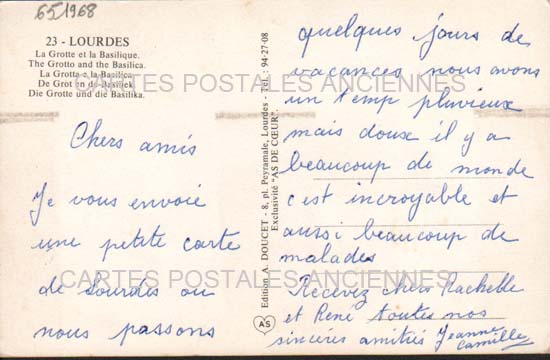 651968
23 - LOURDES
La Grotte et la Basilique.
The Grotto and the Basilica.
La Grotta e la Basilica.
De Grot en de Basiliek.
Die Grotte und die Basilika.
CARTES POSTALES ANCIENNES
Chers amis
Je vous envoie
une petite carte
de Lourdes ou
nous passons
CARTES POSTALES ANCIENNES
Edition A. DOUCET - 8, pl. Peyramale, Lourdes - Tél. 94-27-08
Exclusivité "AS DE CŒUR".
AS
quelques jours de
vacances nous avons
un temp pluvieux
mais doux il y a
beaucoup de monde
c'est incroyable et
aussi beaucoup de
malades
Recevez chers Rachelle
et René toutes nos
sincères amitiés Jeanne
Camille